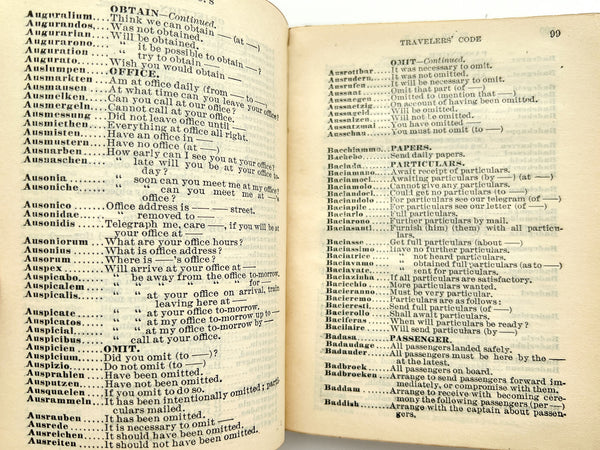 OBTAIN—Continued.
Auguralium.....Think we can obtain — (at —)
Augurandos.....Was not obtained.
Augurarian.....Will be obtained.
Augurarono..... " it be possible to obtain —
Auguration..... " try to obtain —
Augurato.....Wish you would obtain —
Auslumpen.....OFFICE.
Ausmarkten.....Am at office daily (from — to —)
Ausmausen.....At what time can you leave your office?
Ausmelken.....Can you call at our office?
Ausmergeln.....Cannot call at your office.
Ausmessung.....Did not leave office until —
Ausmiethen.....Everything at office all right.
Ausmisten.....Have an office in —
Ausmustern.....Have no office (at —)
Ausnarben.....How early can I see you at your office?
Ausnaschen..... " late will you be at your office to-
day?
Ausonia..... " soon can you meet me at my office?
Ausoniche..... " can you meet me at —'s
office?
Ausonico.....Office address is — — street.
Ausonidae..... " removed to —
Ausonidis.....Telegraph me, care —, if you will be at
your office at —
Ausoniorum.....What are your office hours?
Ausonius.....What is office address?
Ausorum.....Where is —'s office?
Auspex.....Will arrive at your office at —
Auspicabo..... " be away from the office to-morrow.
Auspicalem..... " " " " " " for —
Auspicalis..... " " at your office on arrival, train
leaving here at —
Auspicate..... " " at your office to-morrow.
Auspicatos..... " " at my office to-morrow up to —
Auspicial..... " " at my office to-morrow by —
Auspicibus..... " call at your office.
Auspicien.....OMIT.
Auspicium.....Did you omit (to —)?
Auspizio.....Do not omit (to —)
Auspfahlen.....Have been omitted.
Ausputzen.....Have not been omitted.
Ausquuelen.....If you omit to do so.
Ausrammeln.....It has been intentionally omitted; parti-
culars mailed.
Ausrauben.....It has been omitted.
Ausrede.....It is necessary to omit —
Ausreichen.....It should have been omitted.
Ausreiten.....It should not have been omitted.
TRAVELERS' CODE 99
OMIT—Continued.
Ausrottbar.....It was necessary to omit.
Ausrudern.....It was not omitted.
Ausrufen.....It will be necessary to omit.
Aussaat.....Omit that part (of —)
Aussaegen.....Omitted to mention that (—)
Aussatzig.....On account of having been omitted.
Aussaugd.....Will be omitted.
Aussalzen.....Will not be omitted.
Aussatzmal.....You have omitted —
Ausschau.....You must not omit (to —)
Bacchiammo.....PAPERS.
Bacheho.....Send daily papers.
Bacinda.....PARTICULARS.
Baciamano.....Await receipt of particulars.
Baciamoci.....Awaiting particulars (by —) (at —)
Baciamolo.....Cannot give any particulars.
Baciandori.....Could get no particulars (to —)
Baciandolo.....For particulars see our telegram (of —)
Baciandole.....For particulars see our letter (of —)
Baciarlo.....Full particulars.
Baciarono.....Further particulars by mail.
Baciasanti.....Furnish (him) (them) with all particu-
lars.
Baciasse.....Get full particulars (about —)
Baciassimo.....Have no further particulars.
Baciatrice..... " not heard particulars.
Baciavamo..... " obtained full particulars (as to —)
Baciavate..... " sent for particulars.
Baciazinha.....If all particulars are satisfactory.
Bacicche.....More particulars wanted.
Bacieranno.....Must be very particular.
Bacieremo.....Particulars are as follows:
Bacieresti.....Send full particulars (of —)
Bacierollo.....Shall await particulars.
Bacifero.....When will particulars be ready?
Bacilaire.....Will send particulars (by —)
Badasa.....PASSENGER.
Badaudage.....All passengers landed safely.
Badauder.....All passengers must be here by the —
at the latest.
Badbroek.....All passengers on board.
Badbrocken.....Arrange to send passengers forward im-
mediately, or compromise with them.
Baddam.....Arrange to receive with becoming cere-
mony the following passengers (per —)
Baddish.....Arrange with the captain about passen-
gers.